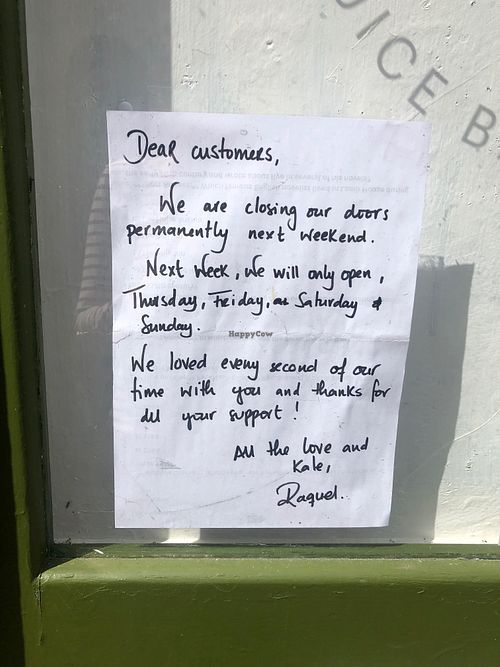 UICE B
Dear customers,
We are closing our doors
permanently next weekend.
Next week, we will only open,
Thursday, Friday, Saturday &
Sunday.
HappyCow
We loved every second of our
time with you and thanks for
all your support!
All the love and
Kale,
Raquel.